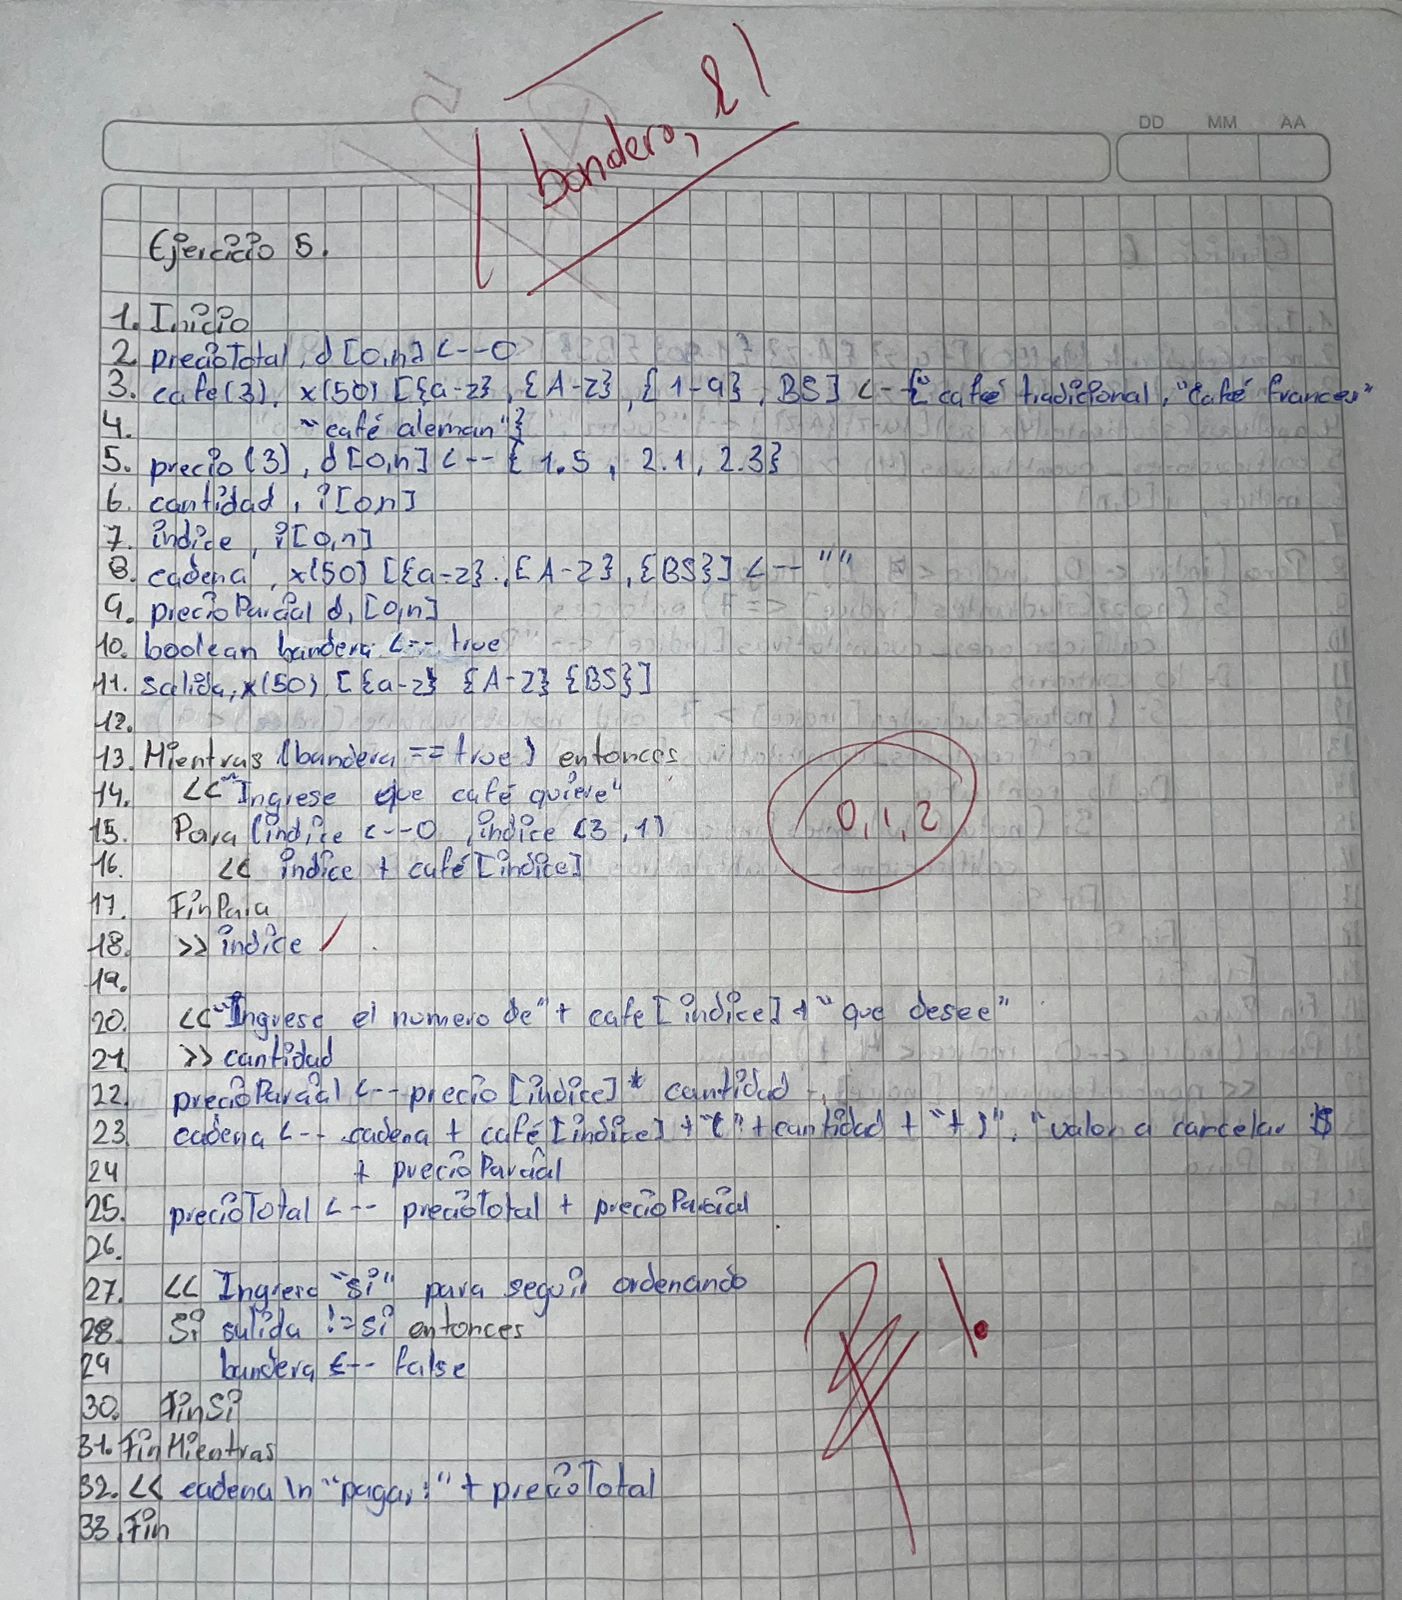 bandera, &
DD MM AA
Ejercicio 5.
1. Inicio
2. precioTotal, d [0,n] <--0
3. cafe(3), x(50) [{a-z}, {A-Z}, {1-9}, BS] <-- {"café tradicional, "café frances"
4. "café aleman"}
5. precio (3), d[0,n] <-- { 1.5, 2.1, 2.3}
6. cantidad, i[0n]
7. indice, i[0,n]
8. cadena, x(50) [{a-z}, {A-Z}, {BS}] <-- ""
9. precioParcial d, [0,n]
10. boolean bandera <-- true
11. salida, x(50), [{a-z} {A-Z} {BS}]
12.
13. Mientras (bandera == true) entonces
14. << "Ingrese que café quiere"
15. Para (indice <--0, indice <3, 1)
0, 1, 2
16. << indice + café [indice]
17. FinPara
18. >> indice
19.
20. << "Ingrese el numero de" + cafe [indice] + "que desee"
21. >> cantidad
22. precioParcial <-- precio [indice] * cantidad
23. cadena <-- cadena + café [indice] + "(" + cantidad + "+ )", "valor a cancelar $
24 + precioParcial
25. precioTotal <-- precioTotal + precioParcial
26.
27. << Ingrese "si" para seguir ordenando
28. Si salida != si entonces
29 bandera <-- false
30. FinSi
31. FinMientras
32. << cadena \n "pagar:" + precioTotal
33. Fin